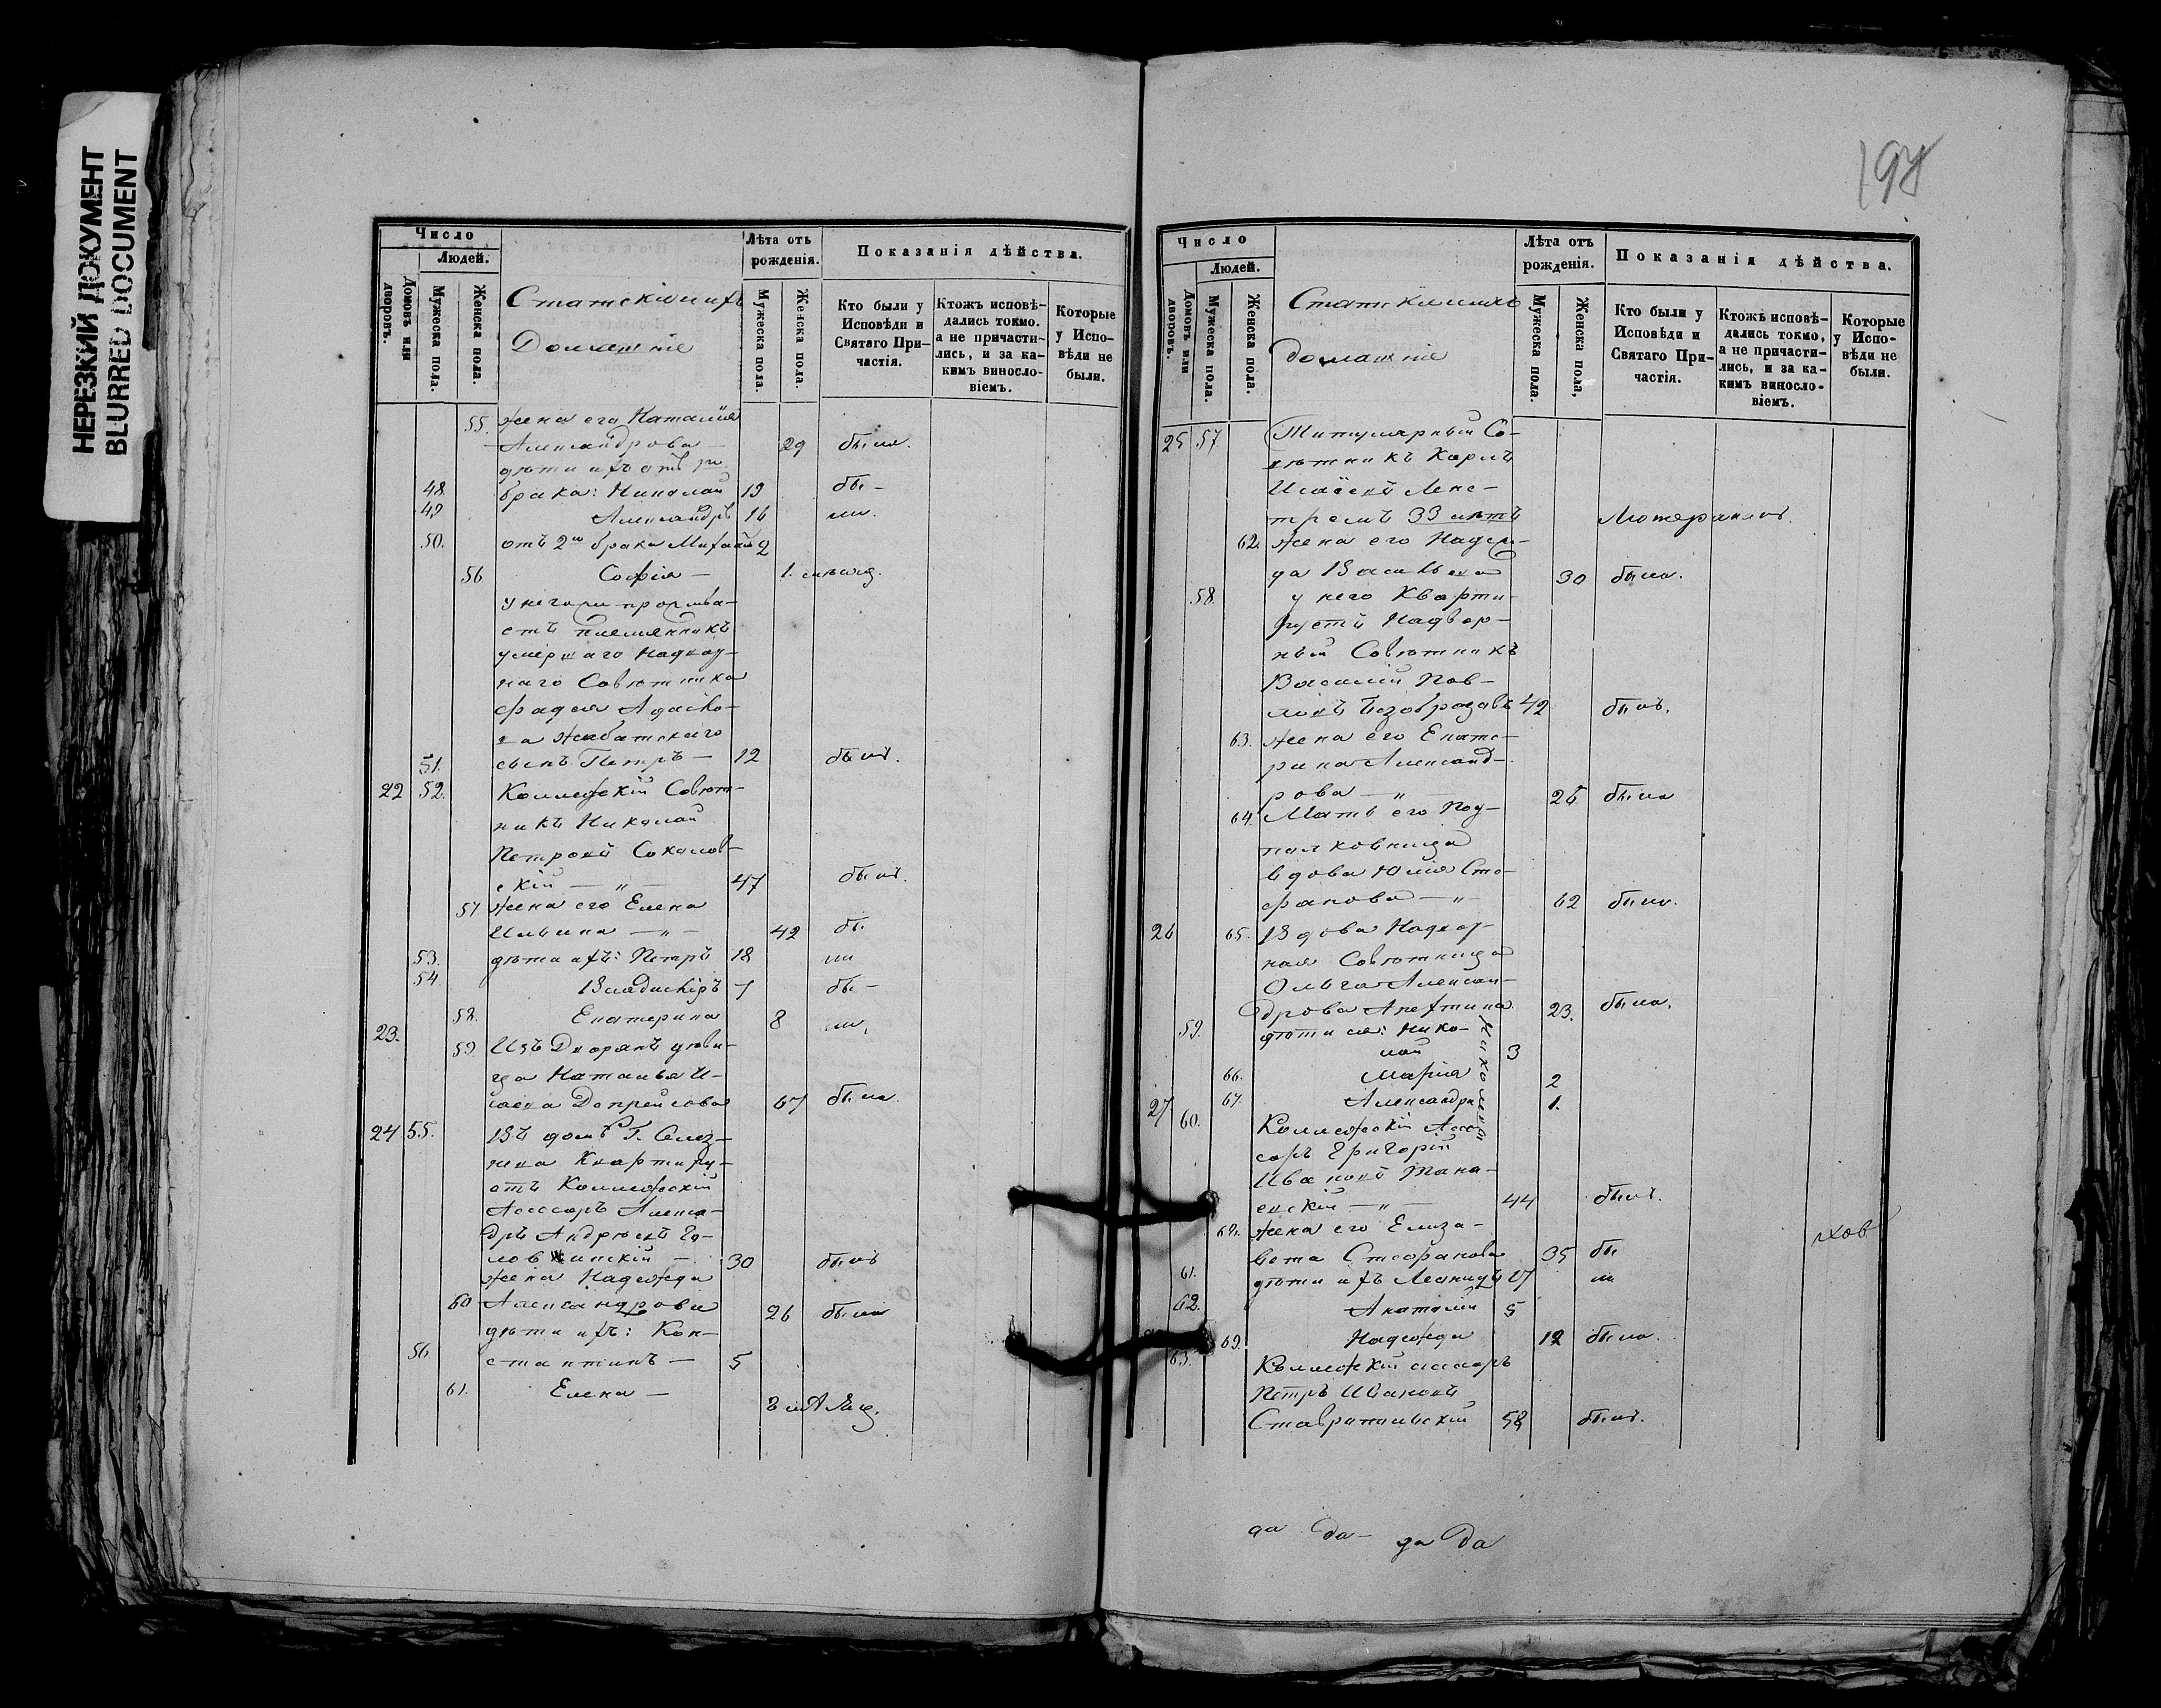 НЕРЕЗКИЙ ДОКУМЕНТ
BLURRED DOCUMENT
Число
Людей.
Домовъ или дворовъ.
Мужеска пола.
Женска пола.
Статскія и ихъ
Домашніе
Лѣта отъ рожденія.
Мужеска пола.
Женска пола.
Показанія дѣйства.
Кто были у Исповѣди и Святаго Причастія.
Ктожъ исповѣдались токмо, а не причастились, и за какимъ винословіемъ.
Которые у Исповѣди не были.
55. жена его Наталія
Александрова — 29 была.
дѣти ихъ отъ
48. брака: Николай 19 бы-
49 Александръ 16 ли.
50. отъ 2го брака Михаилъ 2
56. Софія — 1. мѣсяц.
у него
племянникъ
умершаго Надвор-
наго Совѣтника
51. сынъ Петръ — 12 былъ.
22 52. Коллежскій Совѣт-
никъ Николай
Петровъ Соколов-
скій — „ — 47 былъ.
57 жена его Елена
Ильина — „ — 42 бы
53. дѣти ихъ: Петръ 18 ли
54. Владиміръ 7 бы-
58. Екатерина 8 ли,
23. 59. Изъ Дворянъ дѣви-
ца Наталья И-
саева 67 была.
24 55. Въ домѣ Г.
Квартиру-
етъ Коллежскій
Ассесоръ Алекса-
дръ Андреевъ Го-
ловинскій — 30 былъ
жена Надежда
60 Александрова 26 была
дѣти ихъ: Кон-
56. стантинъ — 5
61. Елена — 8 мѣсяц.
198
Число
Людей.
Домовъ или дворовъ.
Мужеска пола.
Женска пола.
Статскіи и ихъ
домашніе
Лѣта отъ рожденія.
Мужеска пола.
Женска пола,
Показанія дѣйства.
Кто были у Исповѣди и Святаго Причастія.
Ктожъ исповѣдались токмо, а не причастились, и за какимъ винословіемъ.
Которые у Исповѣди не были.
25 57 Титулярный Со-
вѣтникъ Карлъ
тремъ 33 лѣтъ Лютеранинъ.
62. жена его Надеж-
да Васильева 30 была.
58. у него Кварти-
руетъ Надвор-
ный Совѣтникъ
Василій Пав-
ловъ Безобразовъ 42 былъ.
63. жена его Екате-
рина Александ-
рова — „ — 26 была
64. Мать его Под-
полковница
вдова Юлія Сте-
фанова — „ — 62 была.
26 65. Вдова Надвор-
ная Совѣтница
Ольга Алексан-
дрова 23. была.
59. дѣти ея: Нико-
лай 3
66. Марія 2
67. Александра 1.
27 60. Коллежскій Ассе-
соръ Григорій
Ивановъ Тана-
евскій — „ — 44 былъ.
68. жена его Елиза-
вета Стефанова 35 бы
61. дѣти ихъ Леонидъ 17 ли
62. Анатолій 5
69. Надежда 12 была.
63. Коллежскій ассесоръ
Петръ Ивановъ
Ставропольскій 58 былъ.
да да — да да